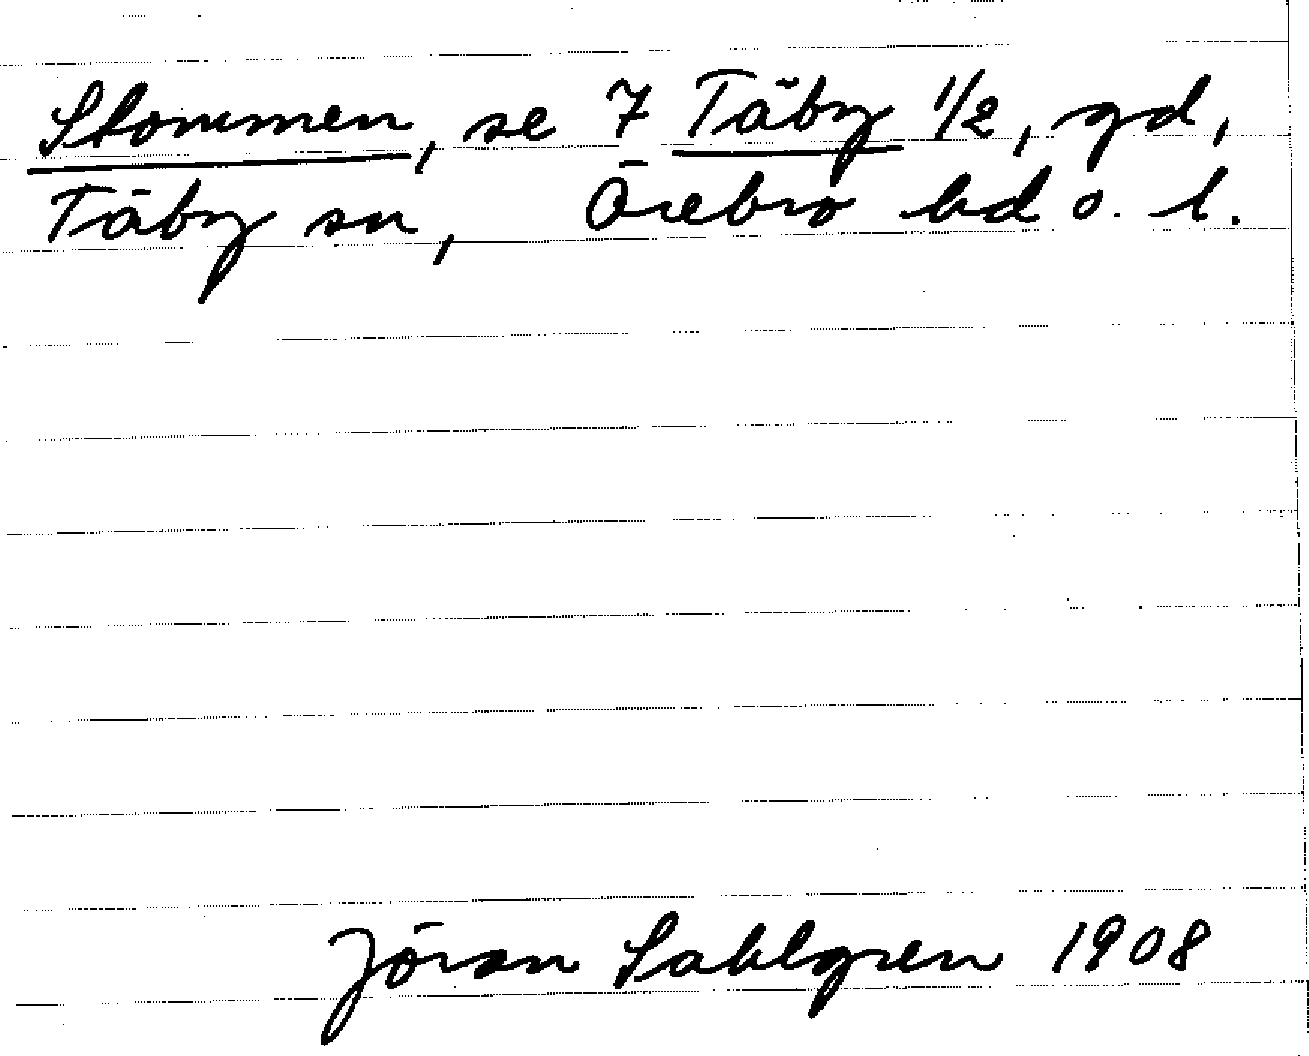 Stommen, se 7 Täby 1/2, gd,
Täby sn, Örebro hd o. l.
Jöran Sahlgren 1908